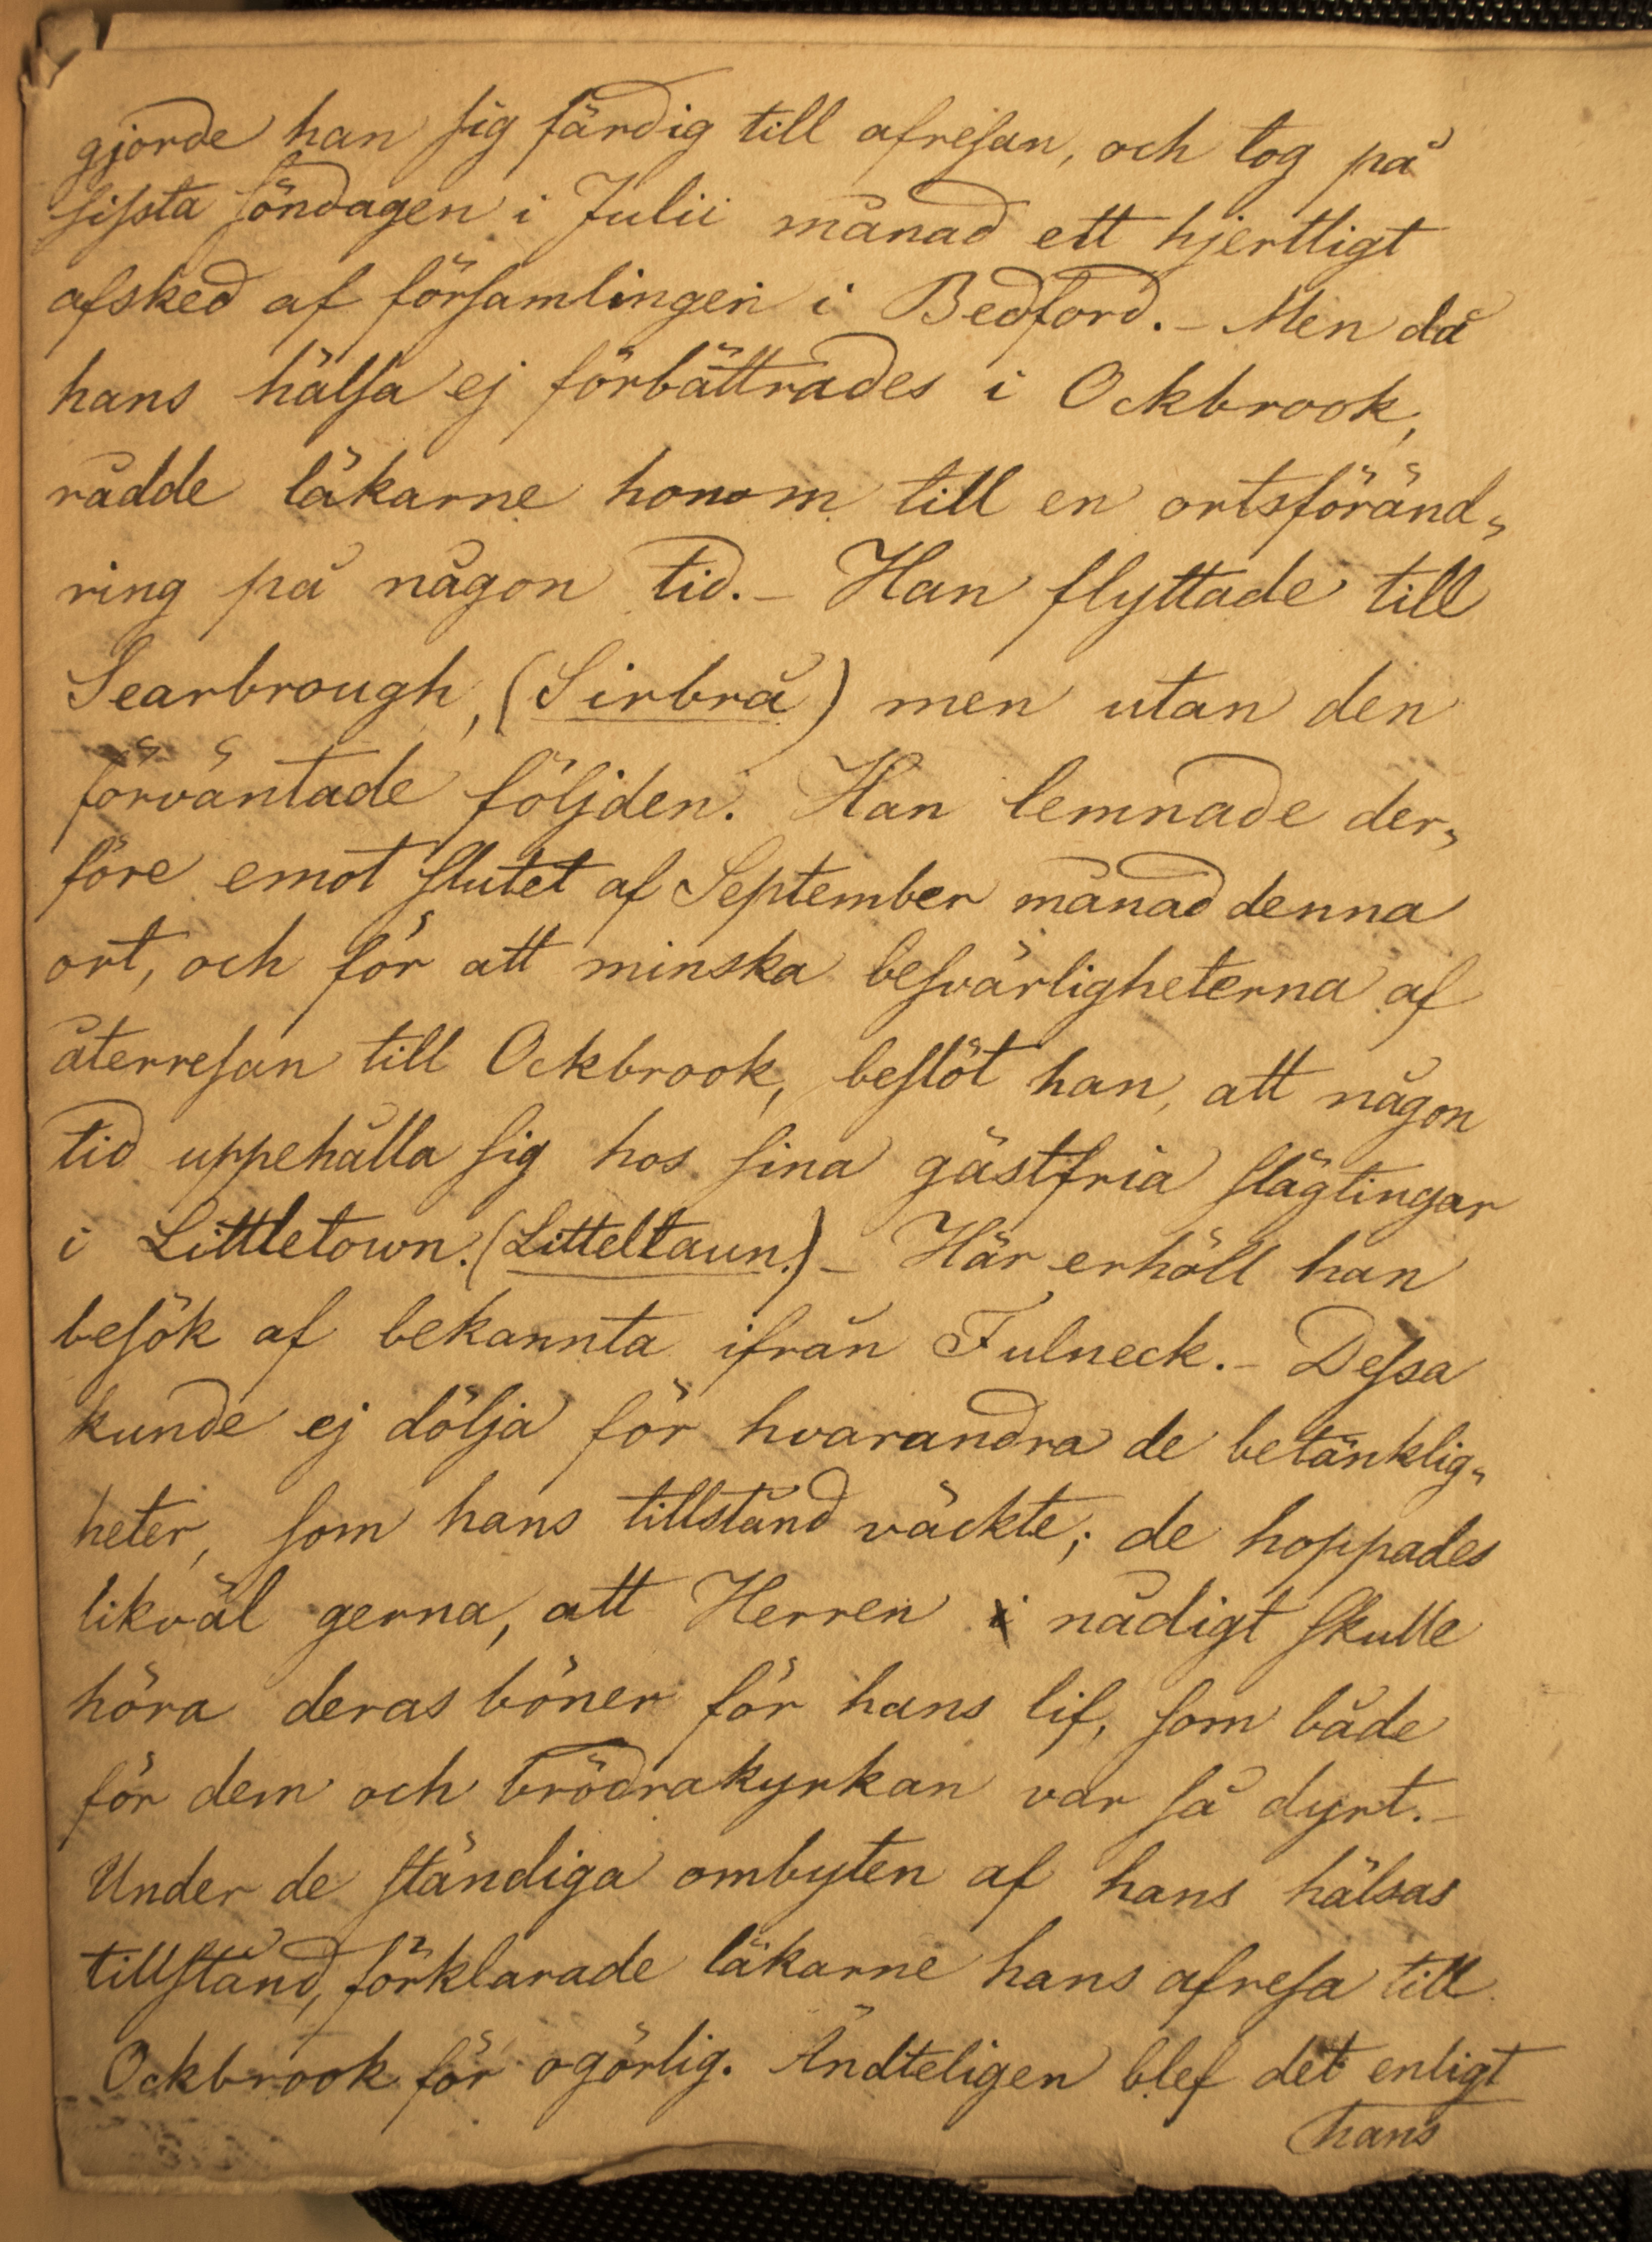 gjorde han sig färdig till afresan, och tog på
sissta söndagen i Julii månad ett hjertligt
afsked af församlingen i Bedford. – Men då
hans hälsa ej förbättrades i Ockbrook,
rådde läkarne honom till en ortsföränd„
ring på någon tid. – Han flyttade till
Searbrough, (Sirbrå) men utan den
förväntade följden. Han lemnade der„
före emot slutet af September månad denna
ort, och för att minska besvärligheterna af
återresan till Ockbrook, beslöt han, att någon
tid uppehålla sig hos sina gästfria slägtingar
i Littletown. (Litteltaun.) – Här erhöll han
besök af bekannta ifrån Fulneck. – Dessa
kunde ej dölja för hvarandra de betänklig„
heter, som hans tillstånd väckte; de hoppades
likväl gerna, att Herren nådigt skulle
höra deras böner för hans lif, som både
för dem och brödrakyrkan var så dyrt. –
Under de ständiga ombyten af hans hälsas
tillstånd, förklarade läkarne hans afresa till
Ockbrook för ogörlig. Ändteligen blef det enligt
hans